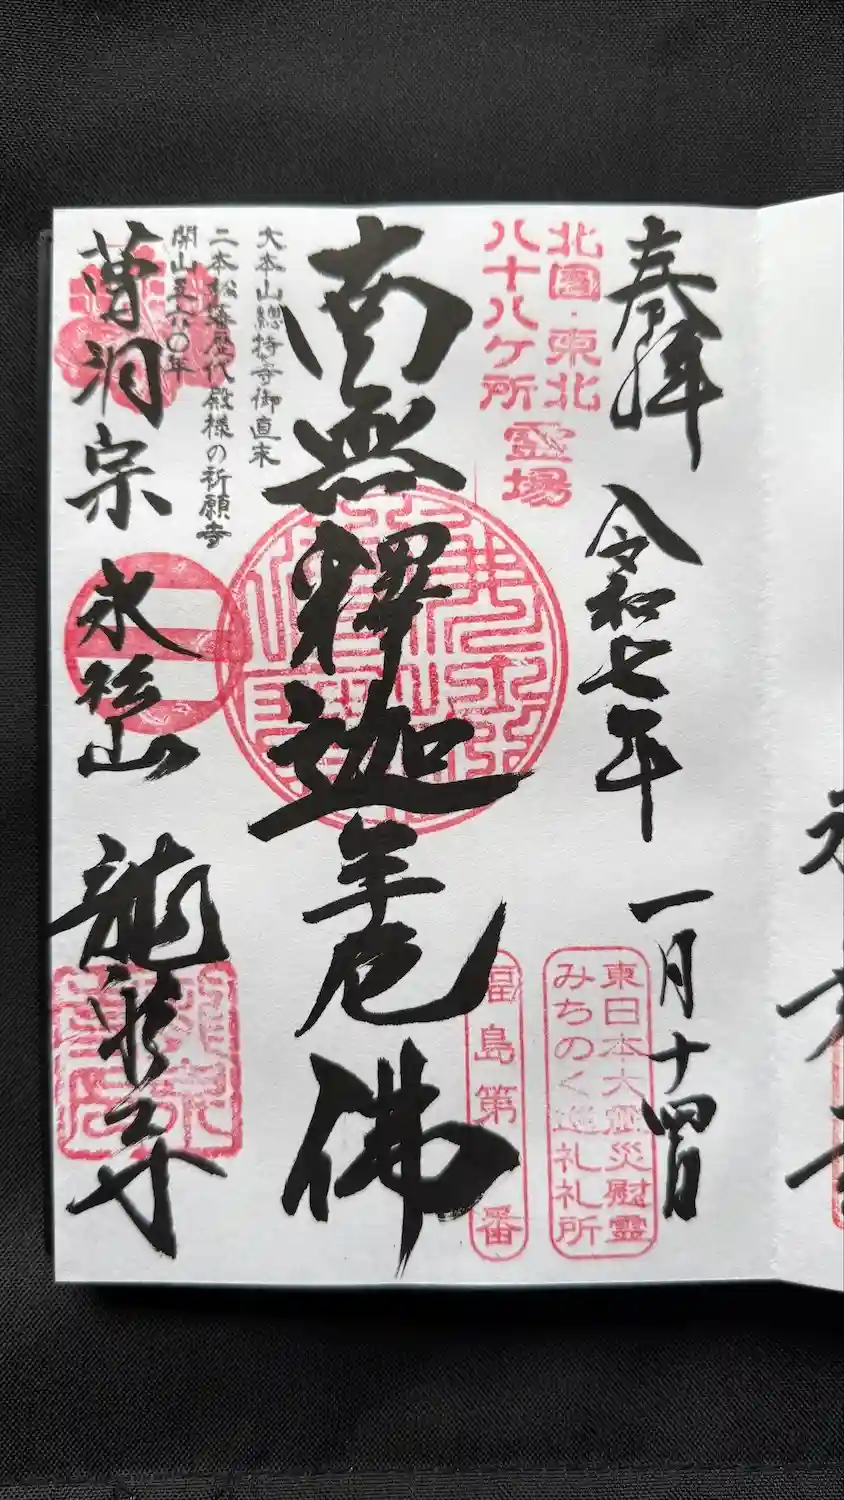 奉拝
令和七年
一月十四日
北国・東北
八十八ケ所
霊場
東日本大震災慰霊
みちのく巡礼札所
福島第
番
南無釋迦牟尼佛
大本山總持寺御直末
二本松藩歴代殿様の祈願寺
開山五六〇年
曹洞宗
永松山
龍泉寺